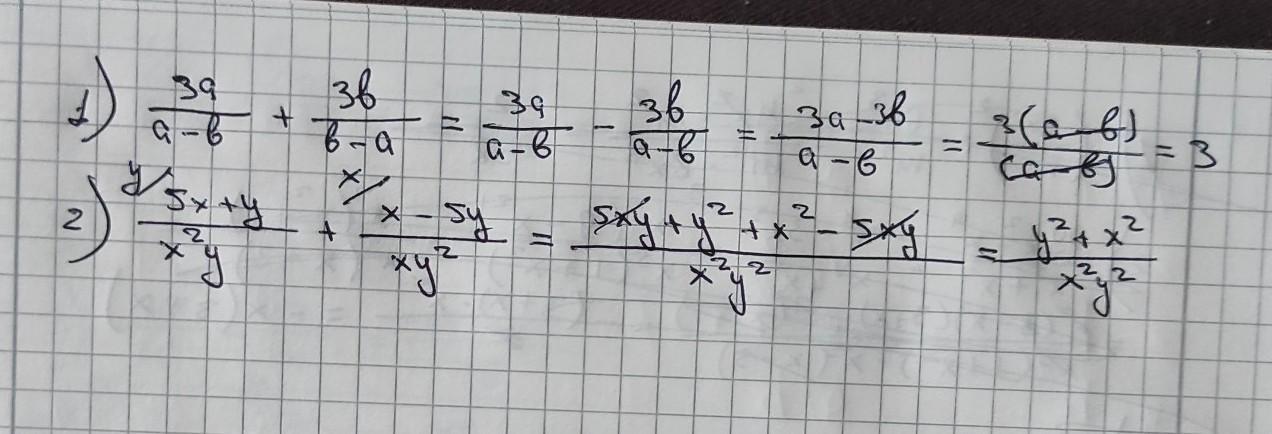 1) 3a/(a-в) + 3в/(в-a) = 3a/(a-в) - 3в/(a-в) = (3a-3в)/(a-в) = 3(a-в)/(a-в) = 3
2) y/ (5x+y)/(x²y) + x/ (x-5y)/(xy²) = (5xy+y²+x²-5xy)/(x²y²) = (y²+x²)/(x²y²)